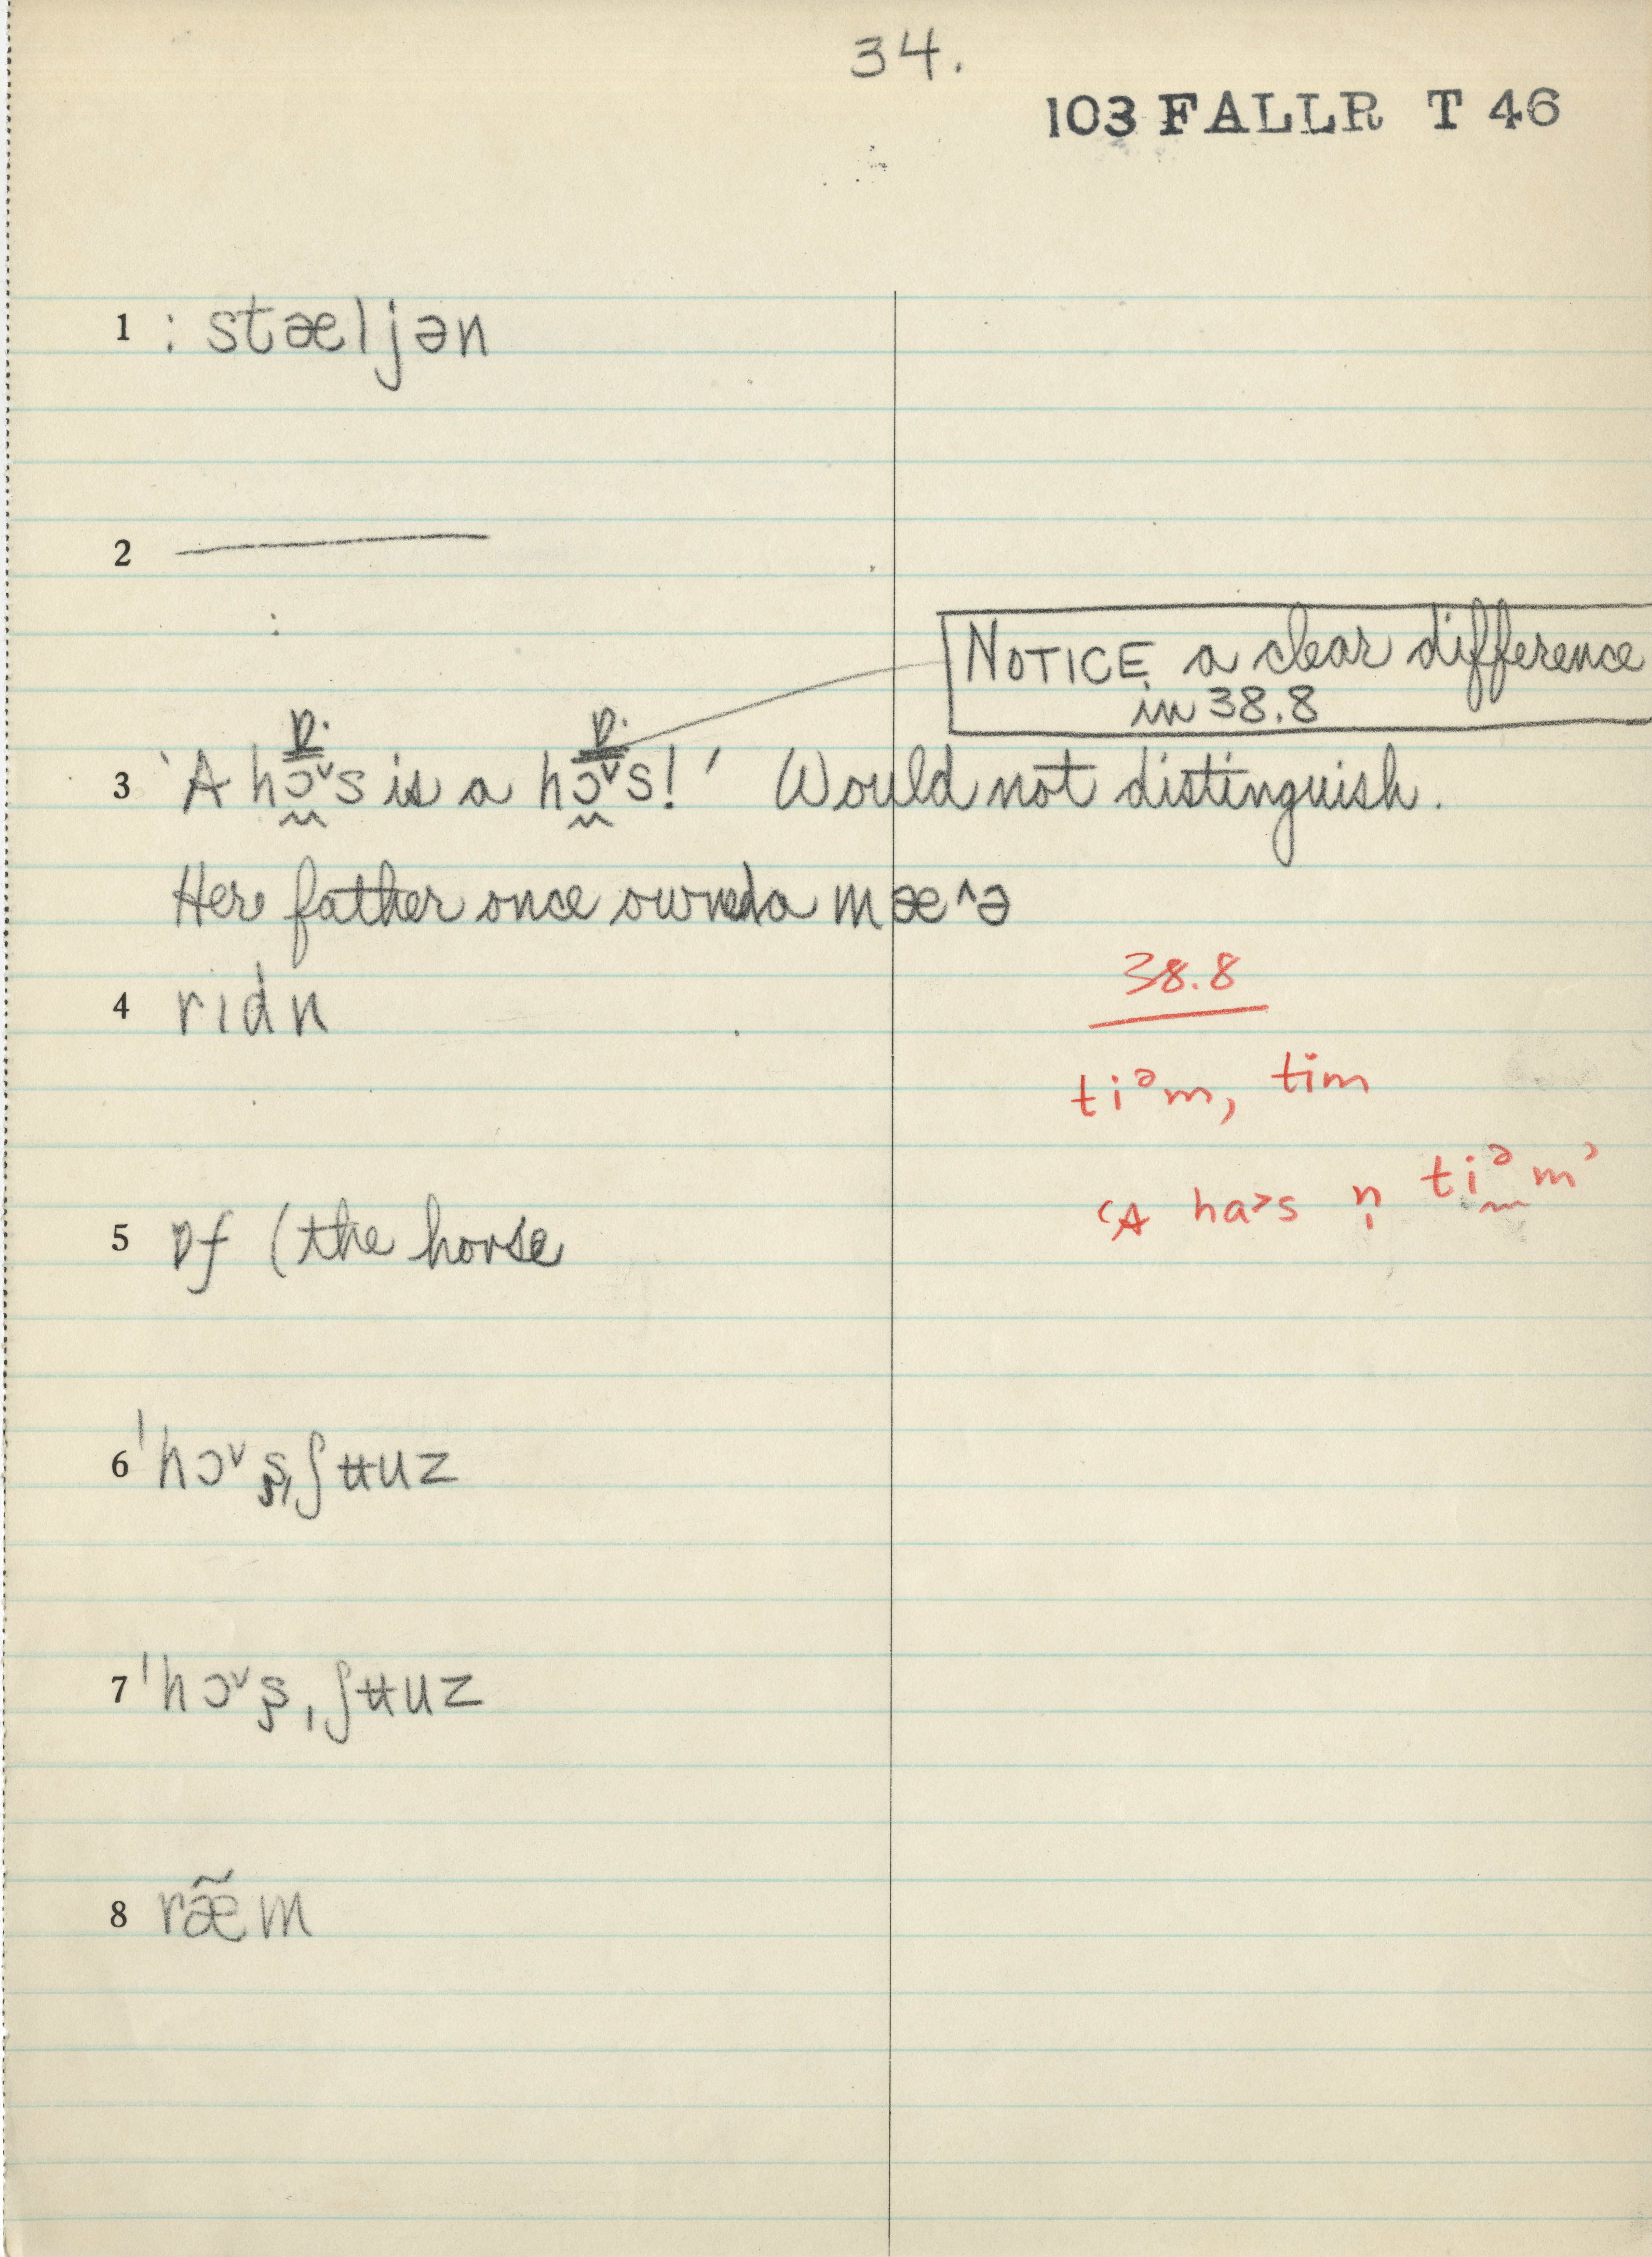 34.
103 FALLR T 46
1 : stæljən
2 ———
:
NOTICE a clear difference
in 38.8
ɒ. ɒ.
3 'A hɔ˅s is a hɔ˅s!' Would not distinguish.
Here father once owned a mæ^ə
4 rɪdn
38.8
tiᵊm, tim
5 ɒf (the horse
'A ha>s n̩ tiᵊm'
6 ˈhɔ˅s̬ˌʃʉuz
7 ˈhɔ˅s̬ˌʃʉuz
8 ræ̃m